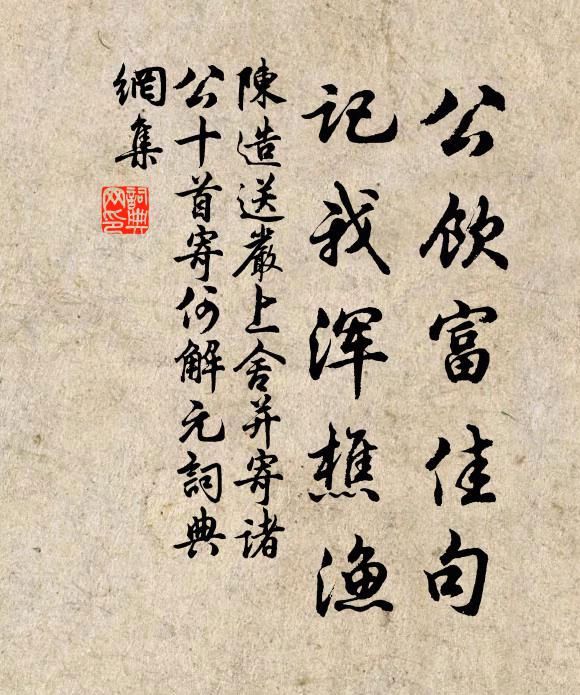 公飲富佳句
記我渾樵漁
陳造送嚴上舍并寄諸
公十首寄何解元詞典
網集
詞典
网印